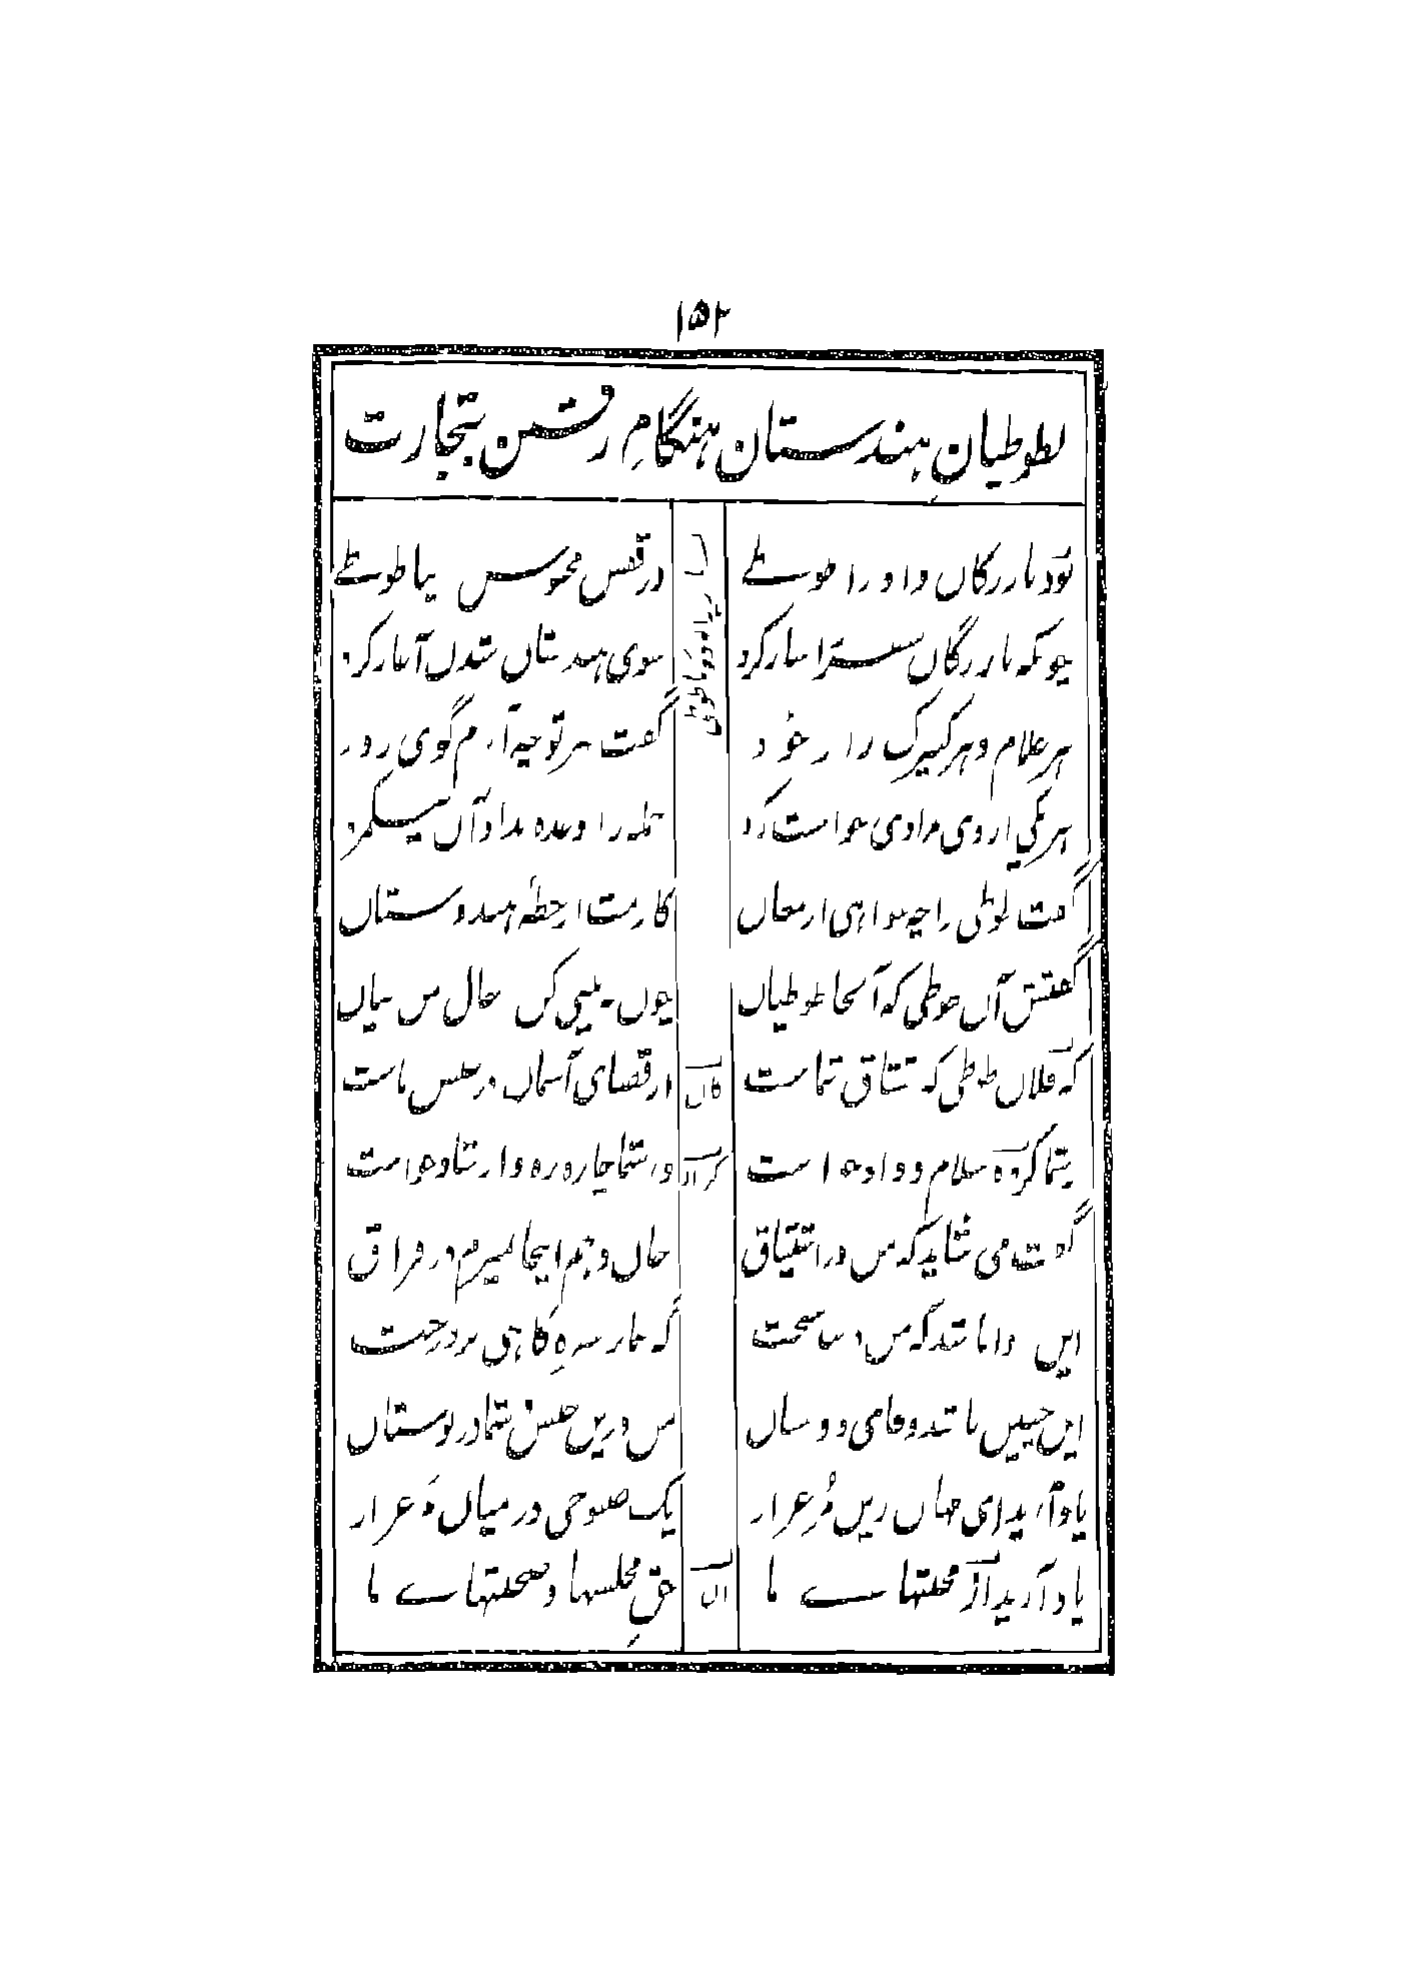 ۱۵۲
بطوطیانِ ہندستان ہنگامِ رفتن بتجارت
بود بازرگان و او را طوطے در قفس محبوس زیبا طوطے
چونکہ بازرگان سفر را ساز کرد سوی ہندستان شدن آغاز کرد
ہر غلام و ہر کنیزک را ز جُود گفت بہر تو چہ آرم گوی زود
ہر یکی از وی مرادی خواست کرد جملہ را وعدہ بداد آن نیکمرد
گفت طوطی را چہ خواہی ارمغان کارمت از خطۂ ہندوستان
گفتش آن طوطی کہ آنجا طوطیان چون ببینی کن ز حال من بیان
کہ فلان طوطی کہ مشتاق شماست از قضای آسمان در حبس ماست
کان
بر شما کردہ سلام و داد خواست وز شما چارہ و رہ و ارشاد خواست
کرد
گفت می شاید کہ من در اشتیاق جان دہم اینجا بمیرم در فراق
این روا باشد کہ من در بند سخت گہ شما بر سبزہ گاہی بر درخت
این چنین باشد وفای دوستان من درین حبس و شما در بوستان
یاد آرید ای مہان زین مُرغِ زار یک صبوحی در میانِ مرغزار
یاد آرید از محبتہاے ما حقِّ مجلسہا و صحبتہاے ما
ان